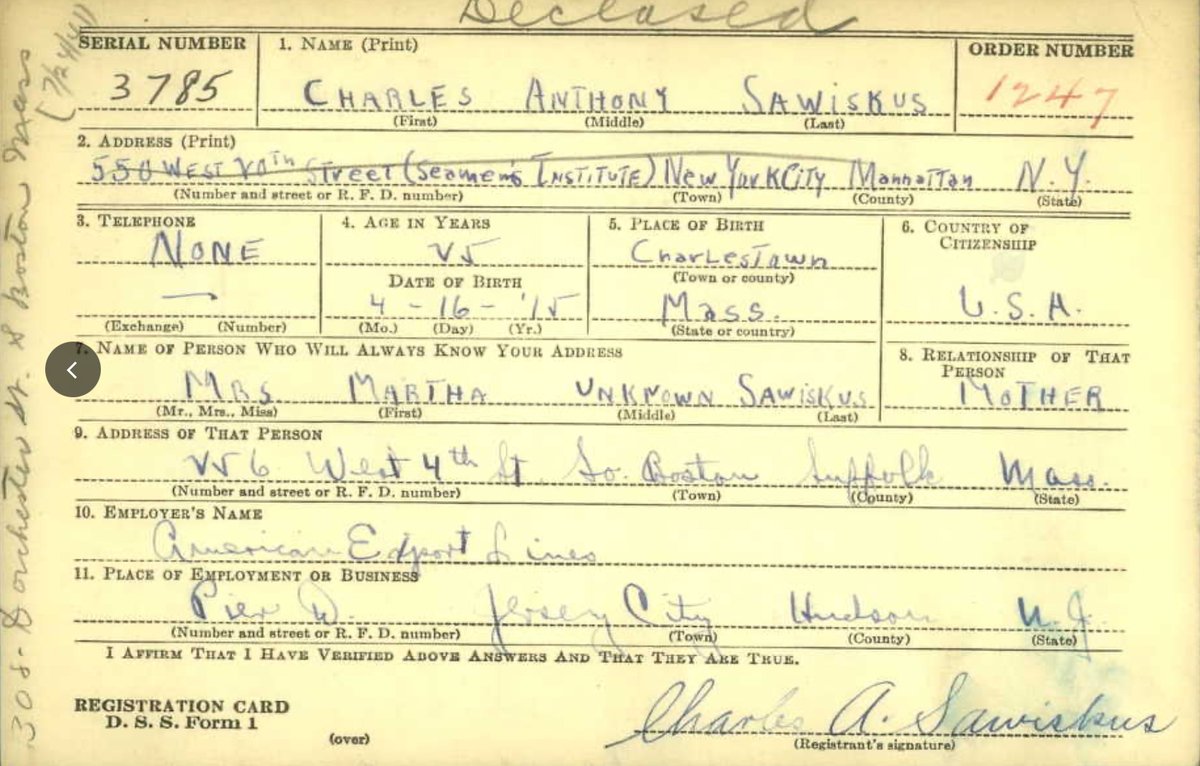 Deceased
SERIAL NUMBER
1. NAME (Print)
ORDER NUMBER
3785
CHARLES ANTHONY SAWISKUS
1247
(First) (Middle) (Last)
2. ADDRESS (Print)
550 WEST 20th Street (Seamen's INSTITUTE) New York City Manhattan N.Y.
(Number and street or R. F. D. number) (Town) (County) (State)
3. TELEPHONE
4. AGE IN YEARS
5. PLACE OF BIRTH
6. COUNTRY OF CITIZENSHIP
NONE
25
Charlestown
DATE OF BIRTH
(Town or county)
—
4 - 16 - '15
Mass.
U.S.A.
(Exchange) (Number)
(Mo.) (Day) (Yr.)
(State or country)
7. NAME OF PERSON WHO WILL ALWAYS KNOW YOUR ADDRESS
8. RELATIONSHIP OF THAT PERSON
MRS. MARTHA UNKNOWN SAWISKUS
MOTHER
(Mr., Mrs., Miss) (First) (Middle) (Last)
9. ADDRESS OF THAT PERSON
256 West 4th St. So. Boston Suffolk Mass.
(Number and street or R. F. D. number) (Town) (County) (State)
10. EMPLOYER'S NAME
American Export Lines
11. PLACE OF EMPLOYMENT OR BUSINESS
Pier D. Jersey City Hudson N.J.
(Number and street or R. F. D. number) (Town) (County) (State)
I AFFIRM THAT I HAVE VERIFIED ABOVE ANSWERS AND THAT THEY ARE TRUE.
REGISTRATION CARD
D. S. S. Form 1
(over)
Charles A. Sawiskus
(Registrant's signature)
308 - Dorchester St. S Boston Mass